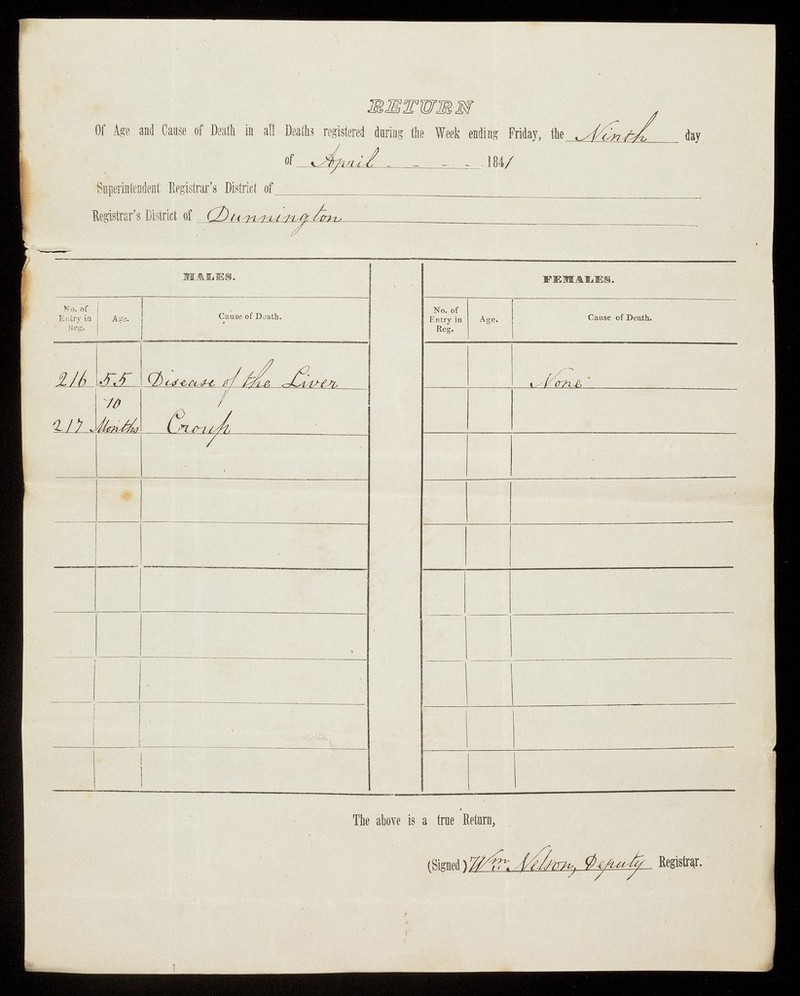 RETURN
Of Age and Cause of Death in all Deaths registered during the Week ending Friday, the Ninth day
of April - - - - 1841
Superintendent Registrar's District of
Registrar's District of Dunnington
MALES.
No. of Entry in Reg. Age. Cause of Death.
216 55 Disease of the Liver
217 10 Months Croup
FEMALES.
No. of Entry in Reg. Age. Cause of Death.
None
The above is a true Return,
(Signed) Wm. Nelson, Deputy Registrar.